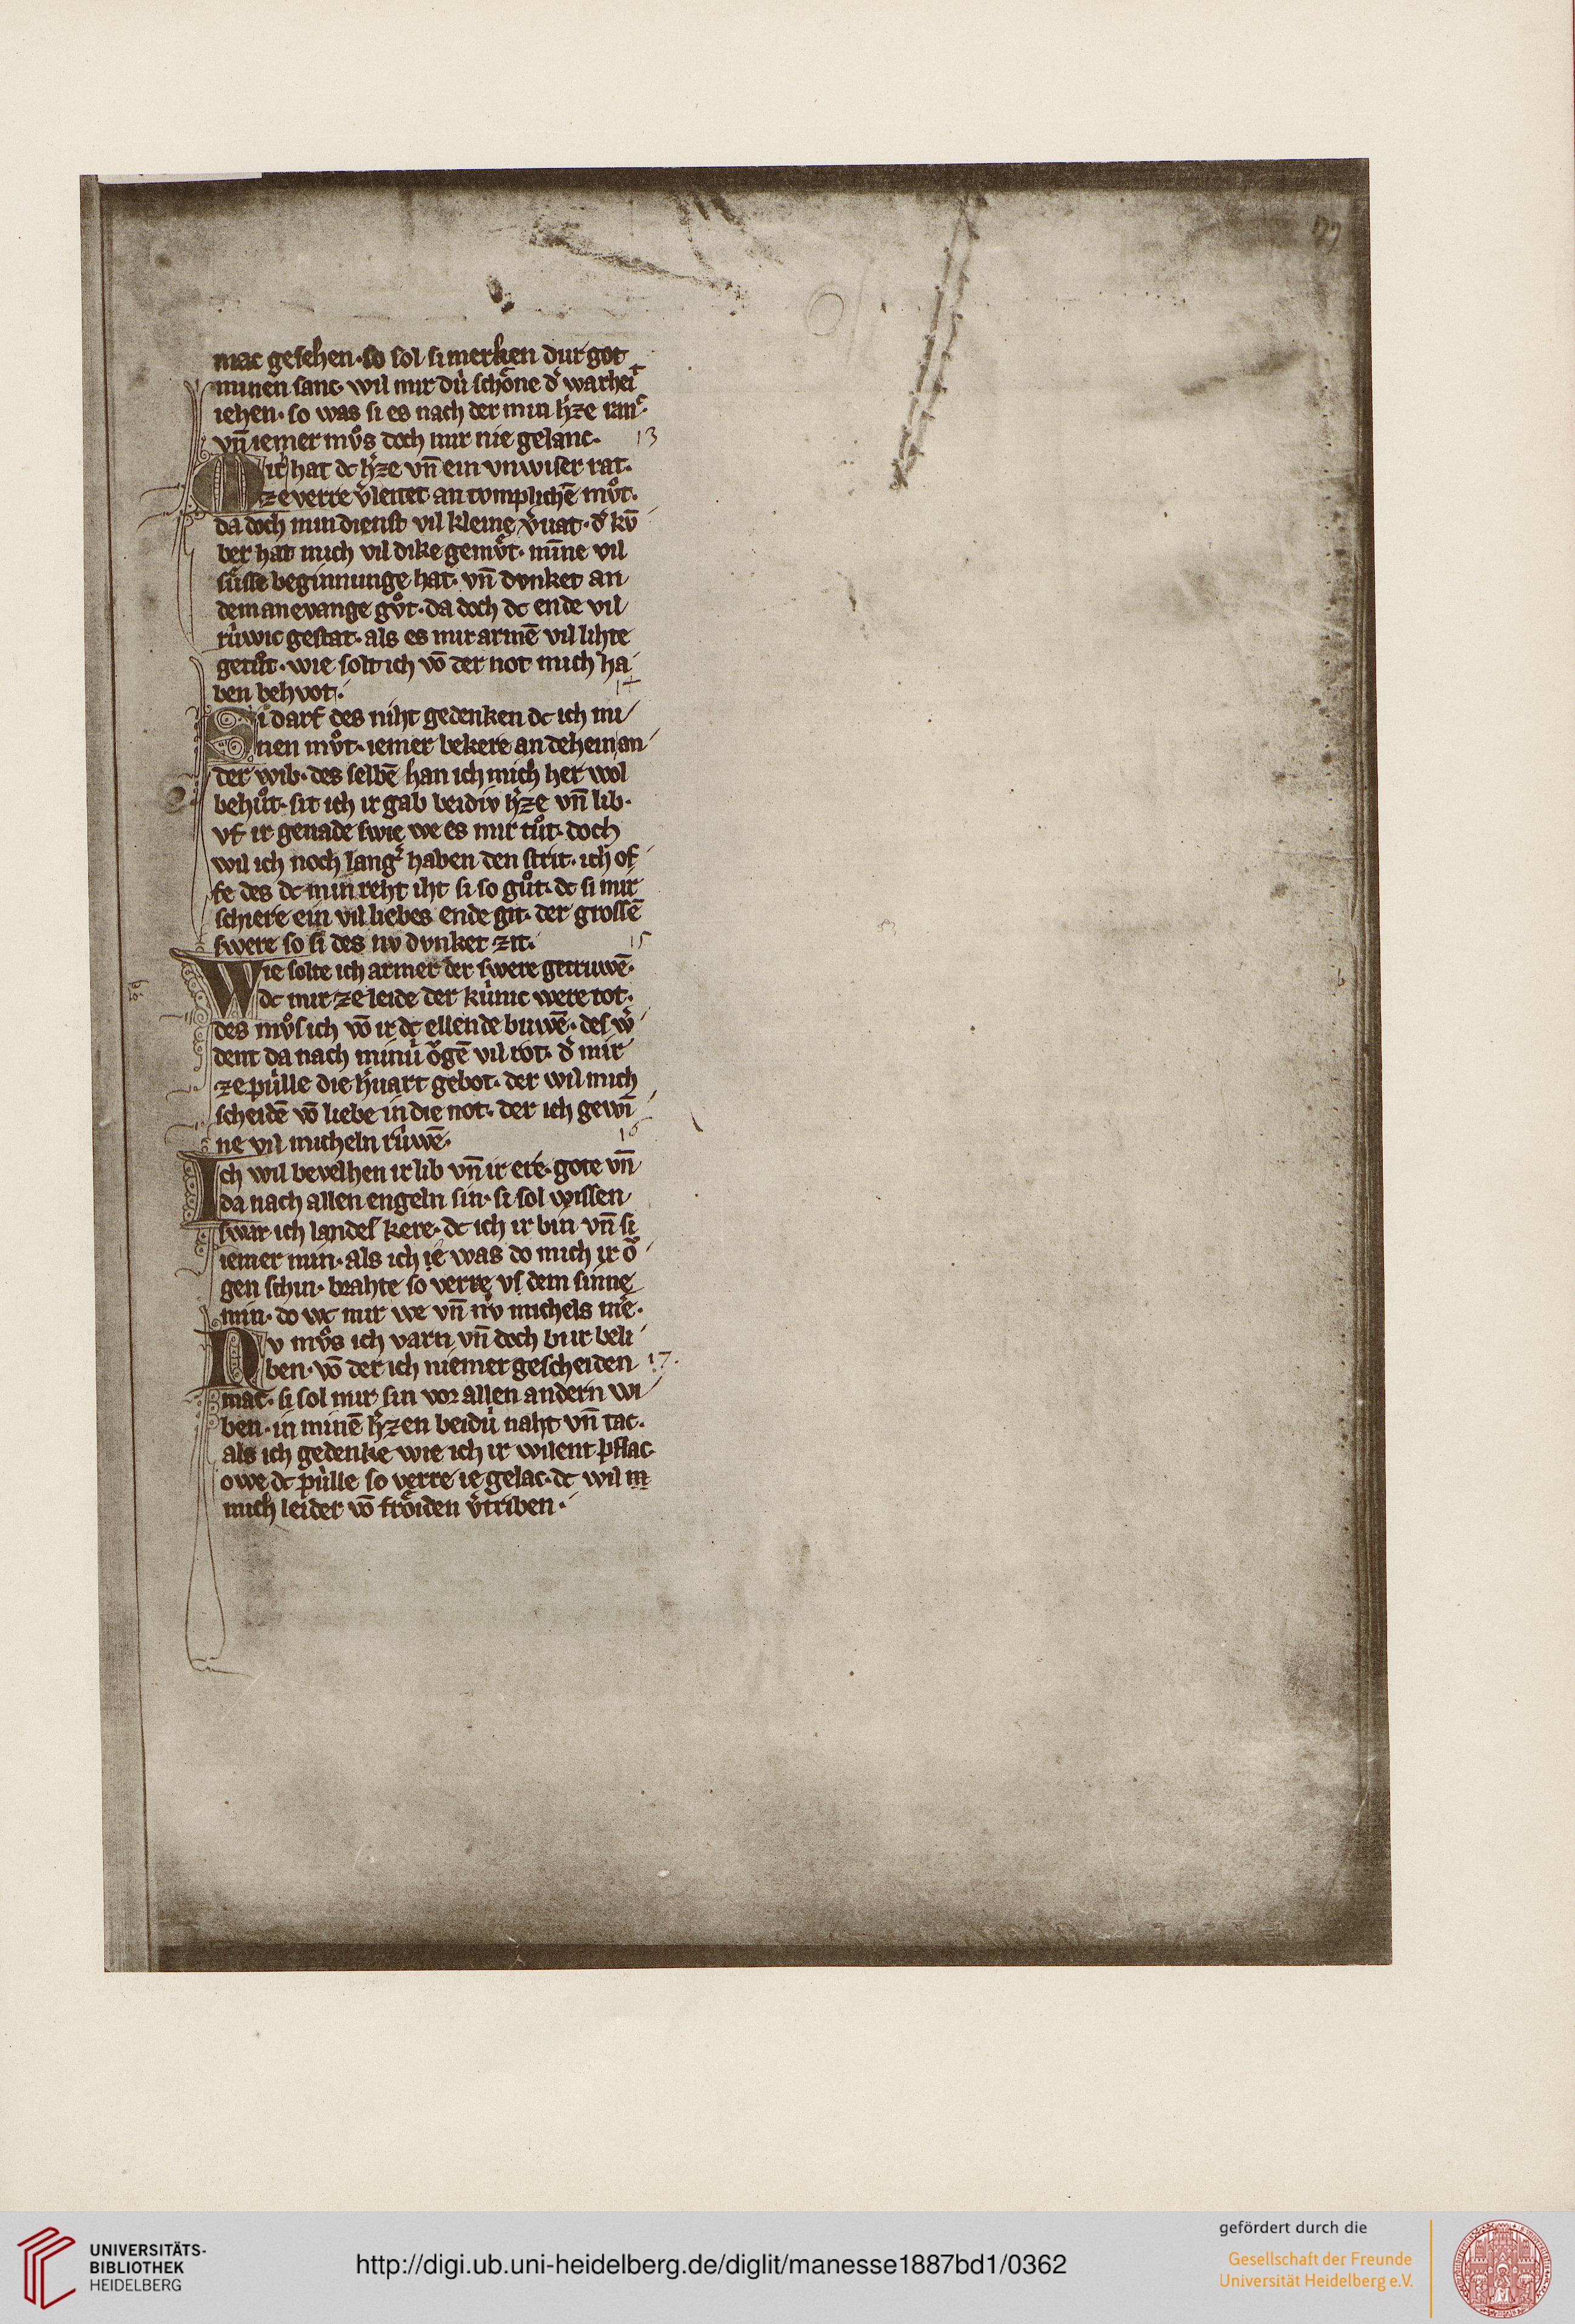 177
mac gesehen· so sol si merken dur got
minen sanc· wil mir dú schoͤne dˀ warheit
iehen· so was si es nach der min hˀze ranc·
vn̄ iemer mvͦs doch mir nie gelanc·
13
Mir hat dc hˀze vn̄ ein vnwiser rat·
ze verre vˀleitet an tvmplichē mvͦt·
da doch min dienst vil kleine vˀuat· dˀ kv̄
ber hat mich vil dike gemvͤt· mīne vil
suͤsse beginnunge hat· vn̄ dvnket an
dem anevange gvͦt· da doch dc ende vil
rúwic gestat· als es mir armē vil lihte
getuͦt· wie solt ich vō der not mich ha
ben behvot·
14
Si darf des niht gedenken dc ich mi
nen mvͦt· iemer bekere an dehein an
der wib· des selbē han ich mich her wol
behuͦt· sit ich ir gab beidiv hˀze vn̄ lib·
vf ir genade swie we es mir tuͦt· doch
wil ich noch langˀ haben den strit· ich of
fe des dc min reht iht si so guͦt· dc si mir
schiere ein vil liebes ende git· der grossē
swere so si des nv dvnket zit·
15
Wie solte ich armer der swere getruwē·
dc mir ze leide der kúnic were tot·
des mvͦs ich vō ir dc ellende buwē· des wˀ
dent da nach minú oͮgē vil rot· dˀ mir
ze púlle die hˀuart gebot· der wil mich
scheidē vō liebe in die not· der ich gewī
ne vil micheln rúwē·
16
Ich wil bevelhen ir lib vn̄ ir ere· gote vn̄
da nach allen engeln sin· si sol wissen
swar ich landes kere· dc ich ir bin vn̄ si
iemer min· als ich ie was do mich ir oͮ
gen schin· brahte so verre vs dem sinne
min· do wc mir we vn̄ nv michels me·
Nv mvͦs ich varn vn̄ doch bi ir beli
ben· vō der ich niemer gescheiden
17·
mac· si sol mir sin vor allen andern wi
ben· in minē hˀzen beidú naht vn̄ tac·
als ich gedenke wie ich ir wilent pflac·
owe dc púlle so verre ie gelac· dc wil m
mich leider vō froͤiden vˀtriben·
UNIVERSITÄTS-
BIBLIOTHEK
HEIDELBERG
http://digi.ub.uni-heidelberg.de/diglit/manesse1887bd1/0362
gefördert durch die
Gesellschaft der Freunde
Universität Heidelberg e.V.